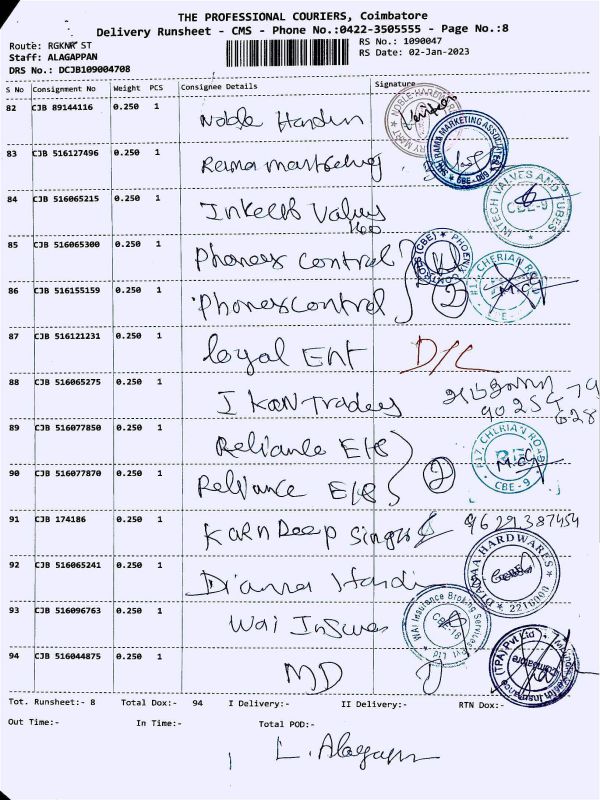 THE PROFESSIONAL COURIERS, Coimbatore
Delivery Runsheet - CMS - Phone No.:0422-3505555 - Page No.:8
Route: RGKNR ST
RS No.: 1090047
Staff: ALAGAPPAN
RS Date: 02-Jan-2023
DRS No.: DCJB109004708
S No Consignment No Weight PCS Consignee Details Signature
82 CJB 89144116 0.250 1 Noble Harden
83 CJB 516127496 0.250 1 Rama marketing
SRI RAMA MARKETING ASSOCIATES CBE-009
84 CJB 516065215 0.250 1 Values
INTECH VALVES AND TUBES CBE-9
85 CJB 516065300 0.250 1 Phones control
86 CJB 516155159 0.250 1 Phones control
87 CJB 516121231 0.250 1 loyal Ent D/C
88 CJB 516065275 0.250 1 I kon Traders
89 CJB 516077850 0.250 1 Reliance
R17, CHERIAN ROAD CBE-9
90 CJB 516077870 0.250 1 Reliance
91 CJB 174186 0.250 1 Karn Deep Singh 9629387454
92 CJB 516065241 0.250 1 Dianna Hardi
HARDWARES
93 CJB 516096763 0.250 1 Wai Insure
WAI Insurance Broking Services Pvt Ltd
94 CJB 516044875 0.250 1 MD
(TPA) Pvt Ltd
Tot. Runsheet:- 8 Total Dox:- 94 I Delivery:- II Delivery:- RTN Dox:-
Out Time:- In Time:- Total POD:-
L. Alagappn